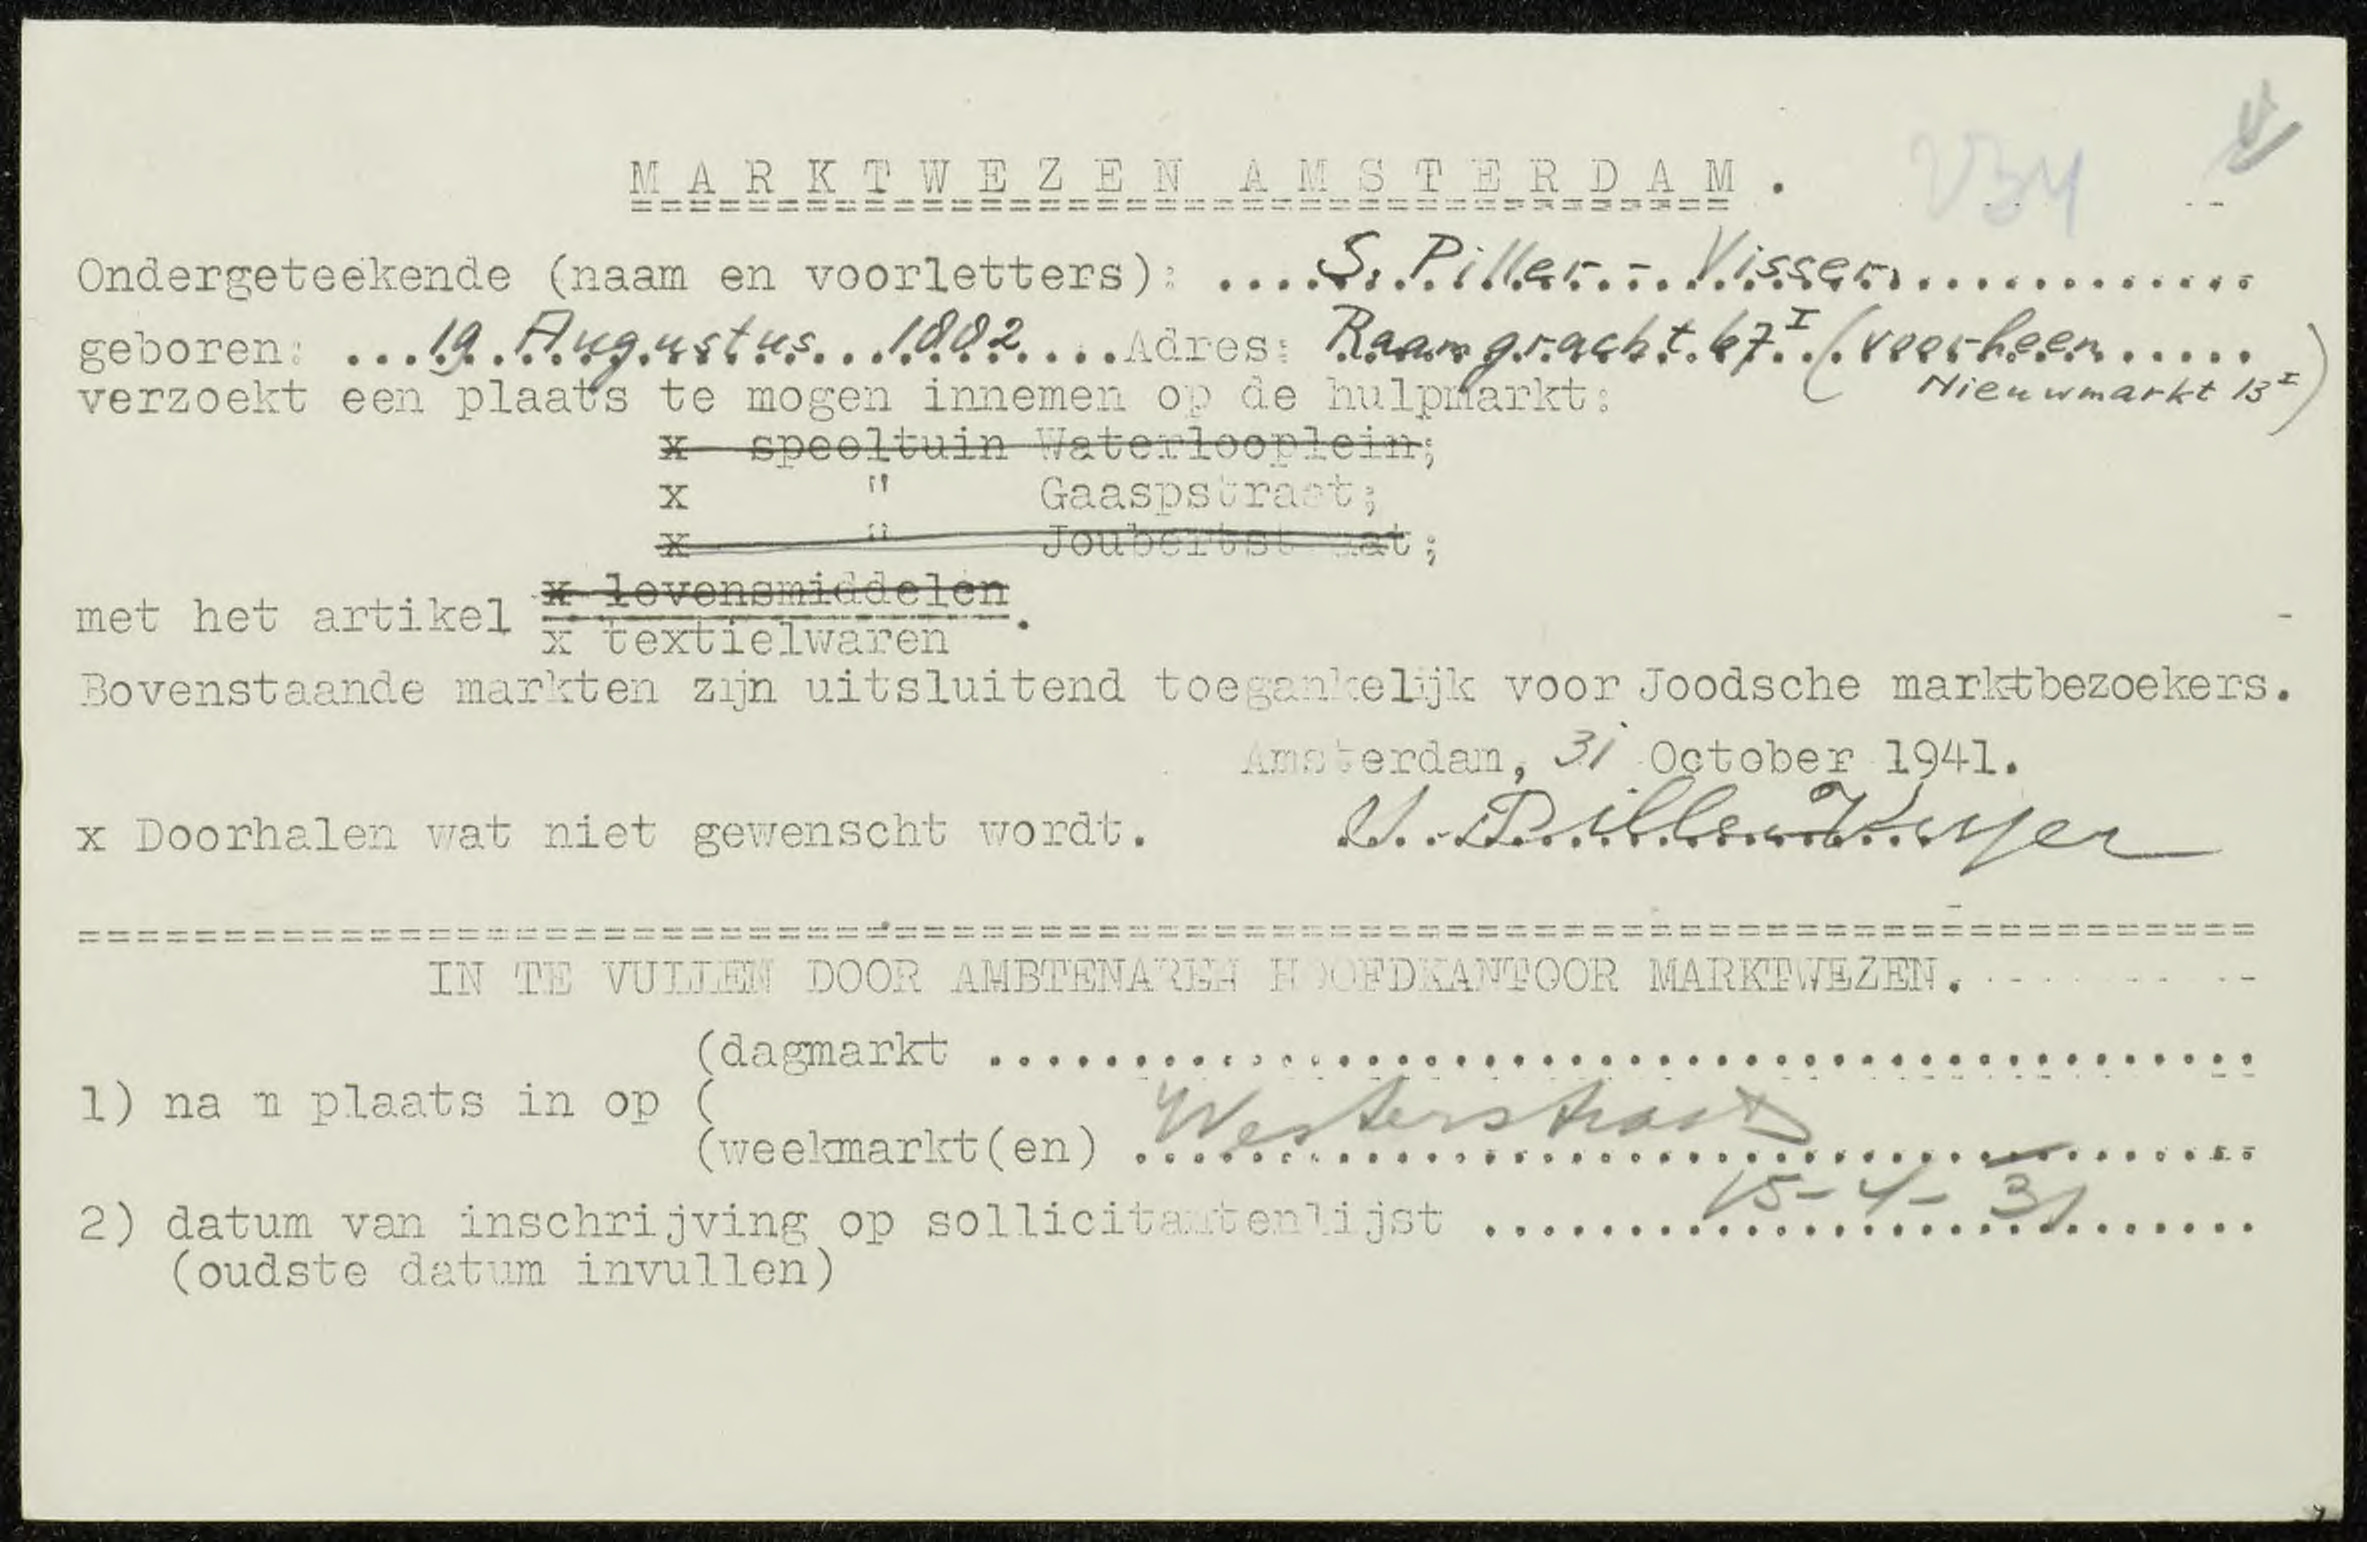 V34
MARKTWEZEN AMSTERDAM.
Ondergeteekende (naam en voorletters): ....S. Piller - Visser............
geboren: ...19 Augustus 1882....Adres: Raamgracht 67 I (voorheen.....
verzoekt een plaats te mogen innemen op de hulpmarkt: Nieuwmarkt 13 I)
x speeltuin Waterlooplein;
x " Gaaspstraat;
x " Joubertstraat;
x levensmiddelen
met het artikel
x textielwaren.
Bovenstaande markten zijn uitsluitend toegankelijk voor Joodsche marktbezoekers.
Amsterdam, 31 October 1941.
x Doorhalen wat niet gewenscht wordt.
IN TE VULLEN DOOR AMBTENAREN HOOFDKANTOOR MARKTWEZEN.
(dagmarkt ............................................
1) na m plaats in op (
(weekmarkt(en) Westerstraat
2) datum van inschrijving op sollicitantenlijst 15-4-31
(oudste datum invullen)